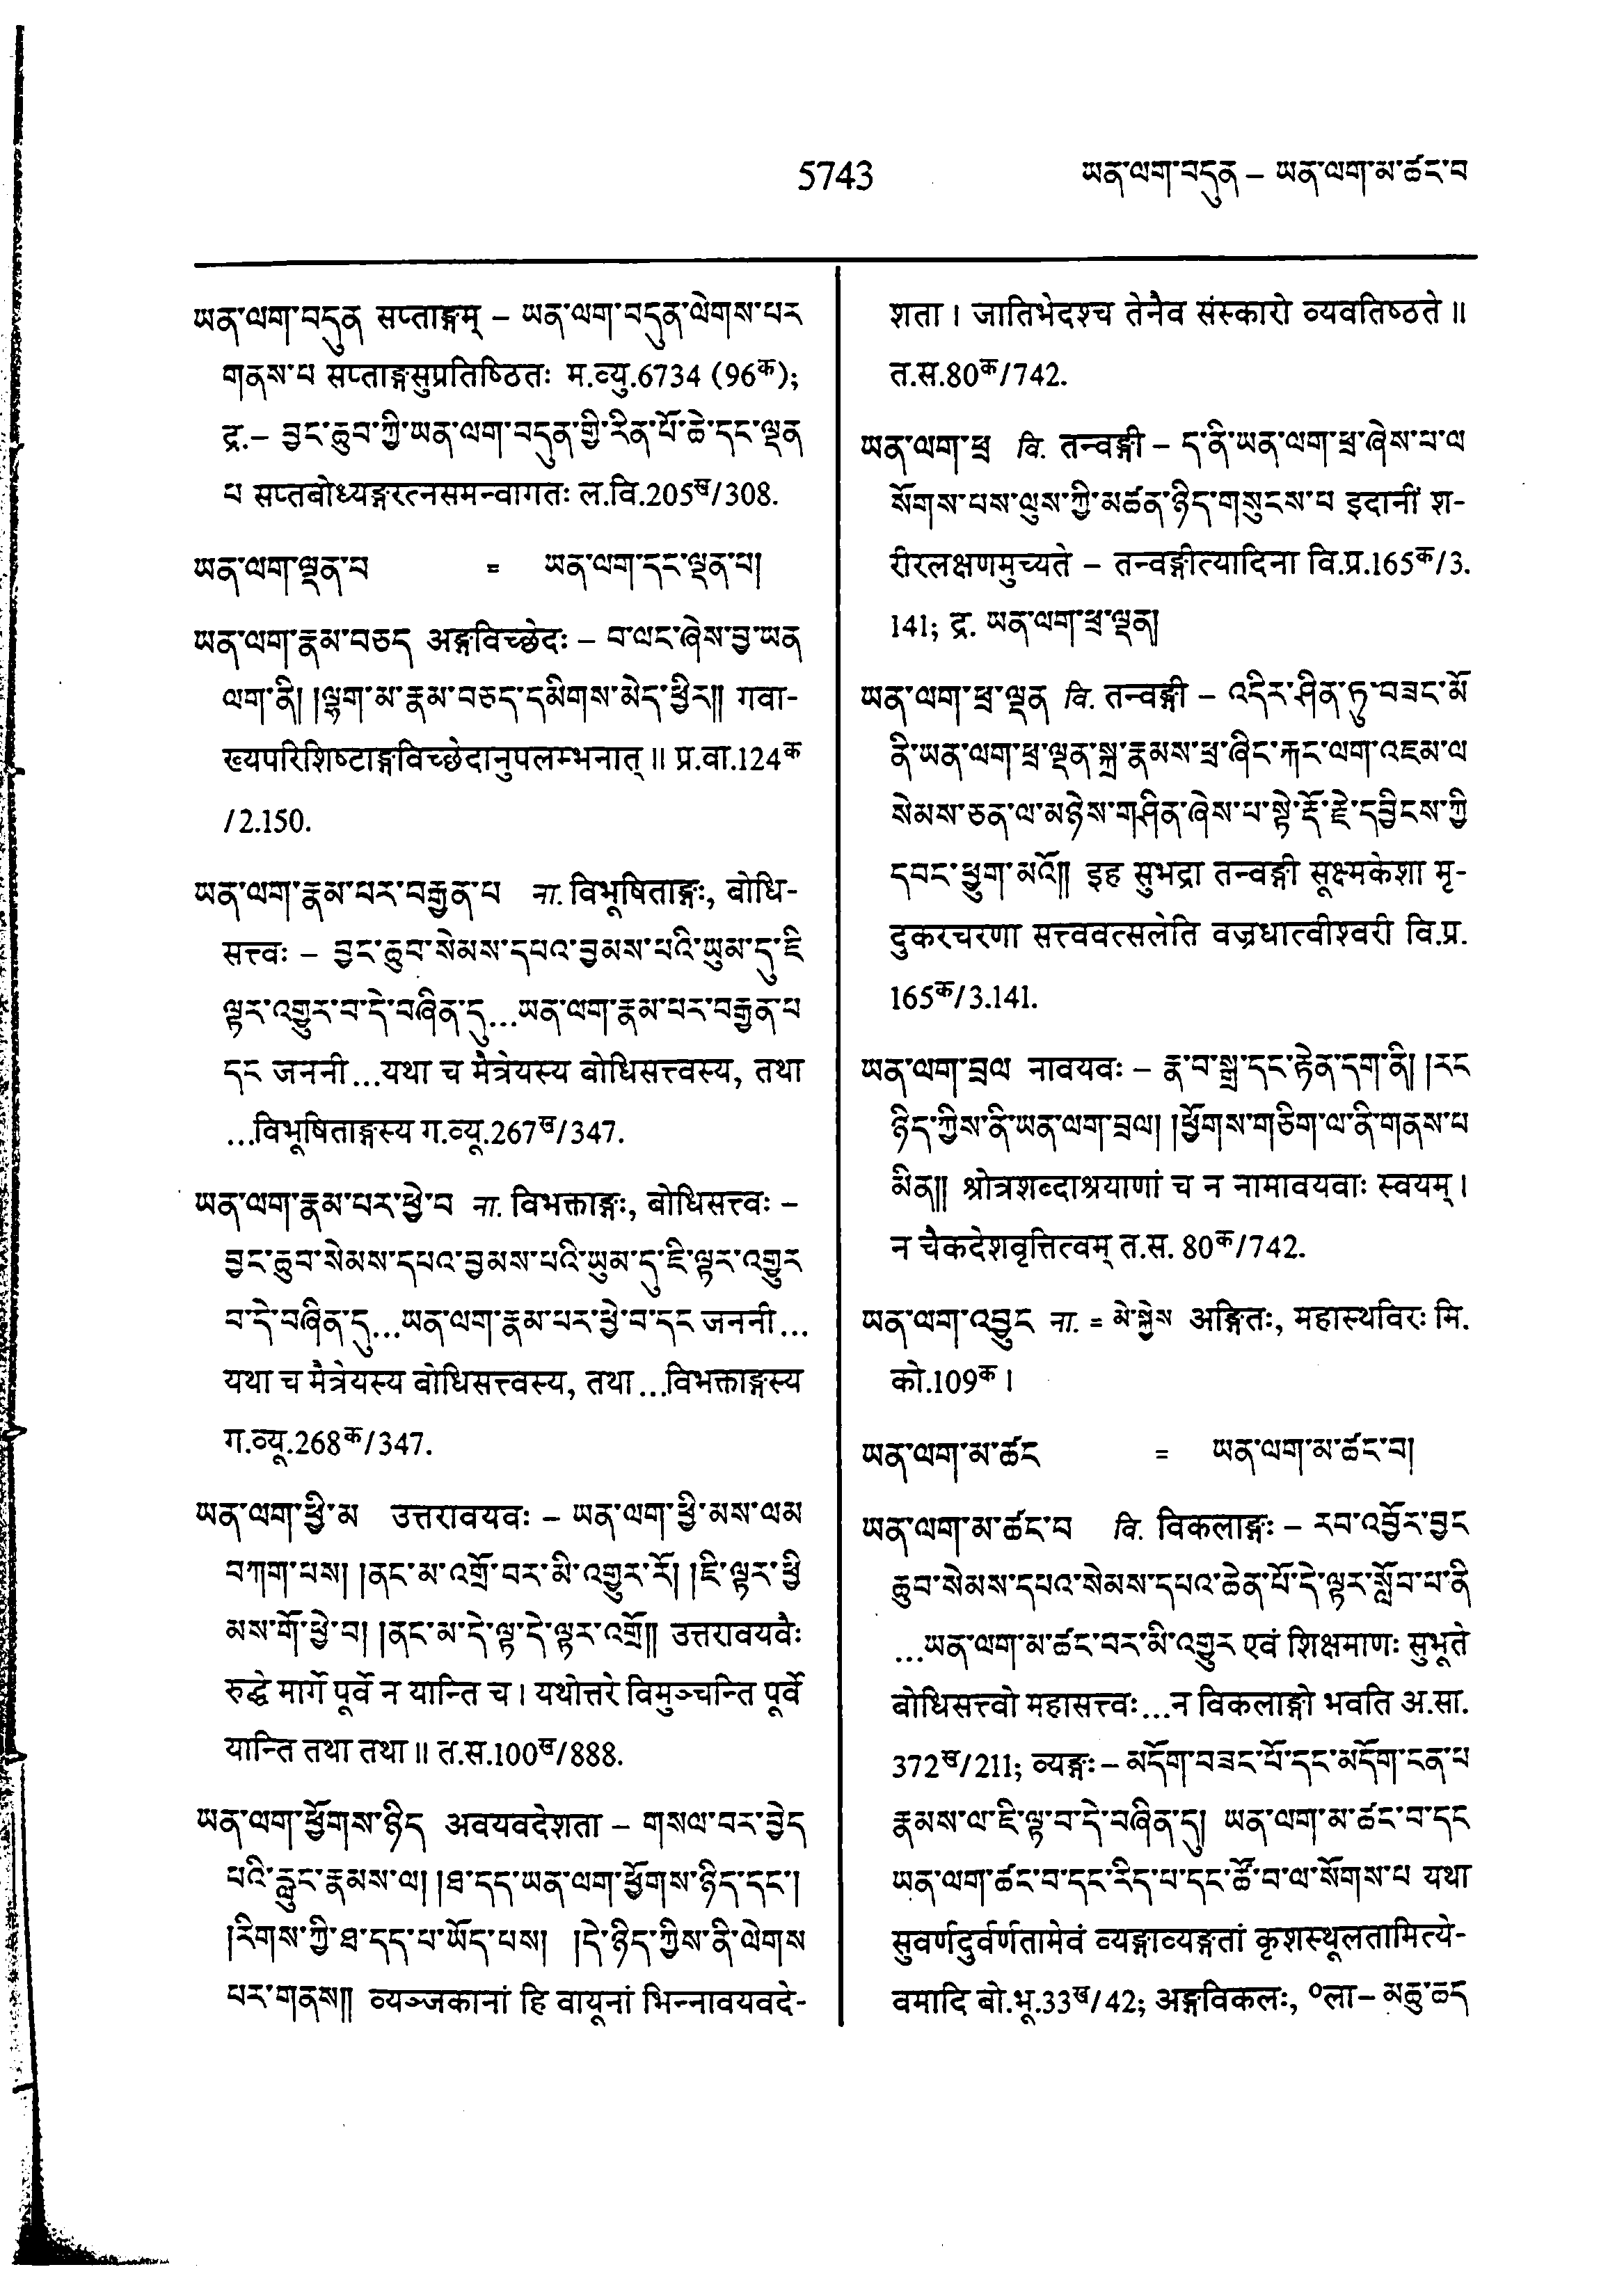 5743
ཡན་ལག་བདུན – ཡན་ལག་མ་ཚང་བ
ཡན་ལག་བདུན सप्ताङ्गम् – ཡན་ལག་བདུན་ལེགས་པར
གནས་པ सप्ताङ्गसुप्रतिष्ठितः म.व्यु.6734 (96क);
द्र.– བྱང་ཆུབ་ཀྱི་ཡན་ལག་བདུན་གྱི་རིན་པོ་ཆེ་དང་ལྡན
པ सप्तबोध्यङ्गरत्नसमन्वागतः ल.वि.205ख/308.
ཡན་ལག་ལྡན་པ = ཡན་ལག་དང་ལྡན་པ།
ཡན་ལག་རྣམ་བཅད अङ्गविच्छेदः – བ་ལང་ཞེས་བྱ་ཡན
ལག་ནི། །ལྷག་མ་རྣམ་བཅད་དམིགས་མེད་ཕྱིར།། गवा-
ख्यपरिशिष्टाङ्गविच्छेदानुपलम्भनात् ॥ प्र.वा.124क
/2.150.
ཡན་ལག་རྣམ་པར་བརྒྱན་པ ना. विभूषिताङ्गः, बोधि-
सत्त्वः – བྱང་ཆུབ་སེམས་དཔའ་བྱམས་པའི་ཡུམ་དུ་ཇི
ལྟར་འགྱུར་བ་དེ་བཞིན་དུ...ཡན་ལག་རྣམ་པར་བརྒྱན་པ
དང जननी...यथा च मैत्रेयस्य बोधिसत्त्वस्य, तथा
...विभूषिताङ्गस्य ग.व्यू.267ख/347.
ཡན་ལག་རྣམ་པར་ཕྱེ་བ ना. विभक्ताङ्गः, बोधिसत्त्वः –
བྱང་ཆུབ་སེམས་དཔའ་བྱམས་པའི་ཡུམ་དུ་ཇི་ལྟར་འགྱུར
བ་དེ་བཞིན་དུ...ཡན་ལག་རྣམ་པར་ཕྱེ་བ་དང जननी...
यथा च मैत्रेयस्य बोधिसत्त्वस्य, तथा...विभक्ताङ्गस्य
ग.व्यू.268क/347.
ཡན་ལག་ཕྱི་མ उत्तरावयवः – ཡན་ལག་ཕྱི་མས་ལམ
བཀག་པས། །ནང་མ་འགྲོ་བར་མི་འགྱུར་རོ། །ཇི་ལྟར་ཕྱི
མས་གོ་ཕྱེ་བ། །ནང་མ་དེ་ལྟ་དེ་ལྟར་འགྲོ།། उत्तरावयवैः
रुद्धे मार्गे पूर्वे न यान्ति च । यथोत्तरे विमुञ्चन्ति पूर्वे
यान्ति तथा तथा ॥ त.स.100ख/888.
ཡན་ལག་ཕྱོགས་ཉིད अवयवदेशता – གསལ་བར་བྱེད
པའི་རླུང་རྣམས་ལ། །ཐ་དད་ཡན་ལག་ཕྱོགས་ཉིད་དང་།
།རིགས་ཀྱི་ཐ་དད་པ་ཡོད་པས། །དེ་ཉིད་ཀྱིས་ནི་ལེགས
པར་གནས།། व्यञ्जकानां हि वायूनां भिन्नावयवदे-
शता । जातिभेदश्च तेनैव संस्कारो व्यवतिष्ठते ॥
त.स.80क/742.
ཡན་ལག་ཕྲ वि. तन्वङ्गी – ད་ནི་ཡན་ལག་ཕྲ་ཞེས་པ་ལ
སོགས་པས་ལུས་ཀྱི་མཚན་ཉིད་གསུངས་པ इदानीं श-
रीरलक्षणमुच्यते – तन्वङ्गीत्यादिना वि.प्र.165क/3.
141; द्र. ཡན་ལག་ཕྲ་ལྡན།
ཡན་ལག་ཕྲ་ལྡན वि. तन्वङ्गी – འདིར་ཤིན་ཏུ་བཟང་མོ
ནི་ཡན་ལག་ཕྲ་ལྡན་སྐྲ་རྣམས་ཕྲ་ཞིང་རྐང་ལག་འཇམ་ལ
སེམས་ཅན་ལ་མཉེས་གཤིན་ཞེས་པ་སྟེ་རྡོ་རྗེ་དབྱིངས་ཀྱི
དབང་ཕྱུག་མའོ།། इह सुभद्रा तन्वङ्गी सूक्ष्मकेशा मृ-
दुकरचरणा सत्त्ववत्सलेति वज्रधात्वीश्वरी वि.प्र.
165क/3.141.
ཡན་ལག་བྲལ नावयवः – རྣ་བ་སྒྲ་དང་རྟེན་དག་ནི། །རང
ཉིད་ཀྱིས་ནི་ཡན་ལག་བྲལ། །ཕྱོགས་གཅིག་ལ་ནི་གནས་པ
མིན།། श्रोत्रशब्दाश्रयाणां च न नामावयवाः स्वयम् ।
न चैकदेशवृत्तित्वम् त.स. 80क/742.
ཡན་ལག་འབྱུང ना. = མེ་སྐྱེས अङ्गितः, महास्थविरः मि.
को.109क ।
ཡན་ལག་མ་ཚང = ཡན་ལག་མ་ཚང་བ།
ཡན་ལག་མ་ཚང་བ वि. विकलाङ्गः – རབ་འབྱོར་བྱང
ཆུབ་སེམས་དཔའ་སེམས་དཔའ་ཆེན་པོ་དེ་ལྟར་སློབ་པ་ནི
...ཡན་ལག་མ་ཚང་བར་མི་འགྱུར एवं शिक्षमाणः सुभूते
बोधिसत्त्वो महासत्त्वः...न विकलाङ्गो भवति अ.सा.
372ख/211; व्यङ्गः – མདོག་བཟང་པོ་དང་མདོག་ངན་པ
རྣམས་ལ་ཇི་ལྟ་བ་དེ་བཞིན་དུ། ཡན་ལག་མ་ཚང་བ་དང
ཡན་ལག་ཚང་བ་དང་རིད་པ་དང་ཚོ་བ་ལ་སོགས་པ यथा
सुवर्णदुर्वर्णतामेवं व्यङ्गाव्यङ्गतां कृशस्थूलतामित्ये-
वमादि बो.भू.33ख/42; अङ्गविकलः, ०ला – མཆུ་ཆད